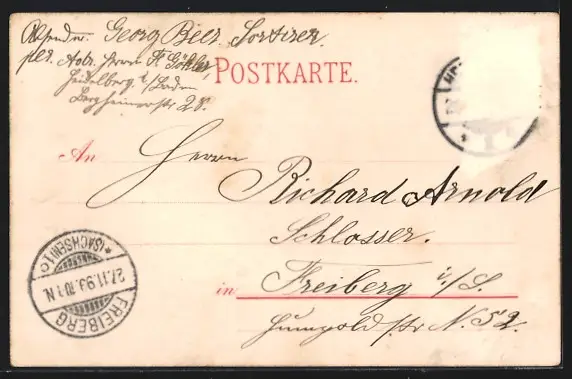 Absender. Georg Beer. Sortirer.
pls. Adr. Herrn F. Göhler,
Heidelberg i/Baden
Bergheimerstr 28.
POSTKARTE.
An Herrn
Richard Arnold
Schlosser.
in Freiberg i./S.
Humpold str N. 52.
FREIBERG
(SACHSEN) 1 c
27.11.93. 10-1 N.